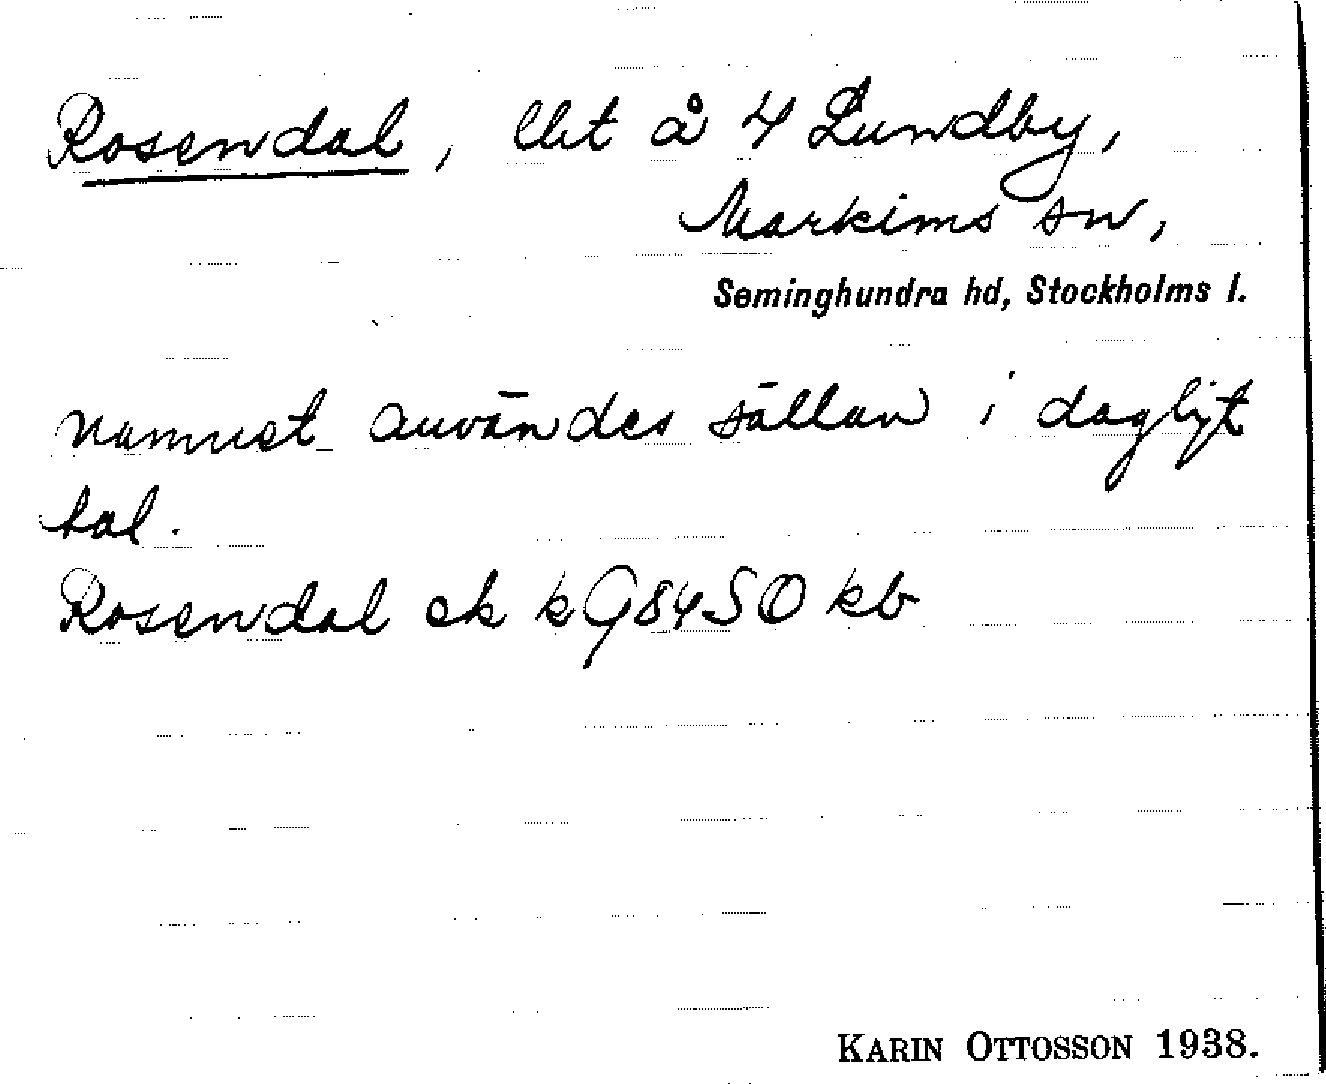 Rosendal, lht å 4 Lundby,
Markims sn,
Seminghundra hd, Stockholms l.
namnet användes sällan i dagligt
tal.
Rosendal ek k G84SO kb
KARIN OTTOSSON 1938.